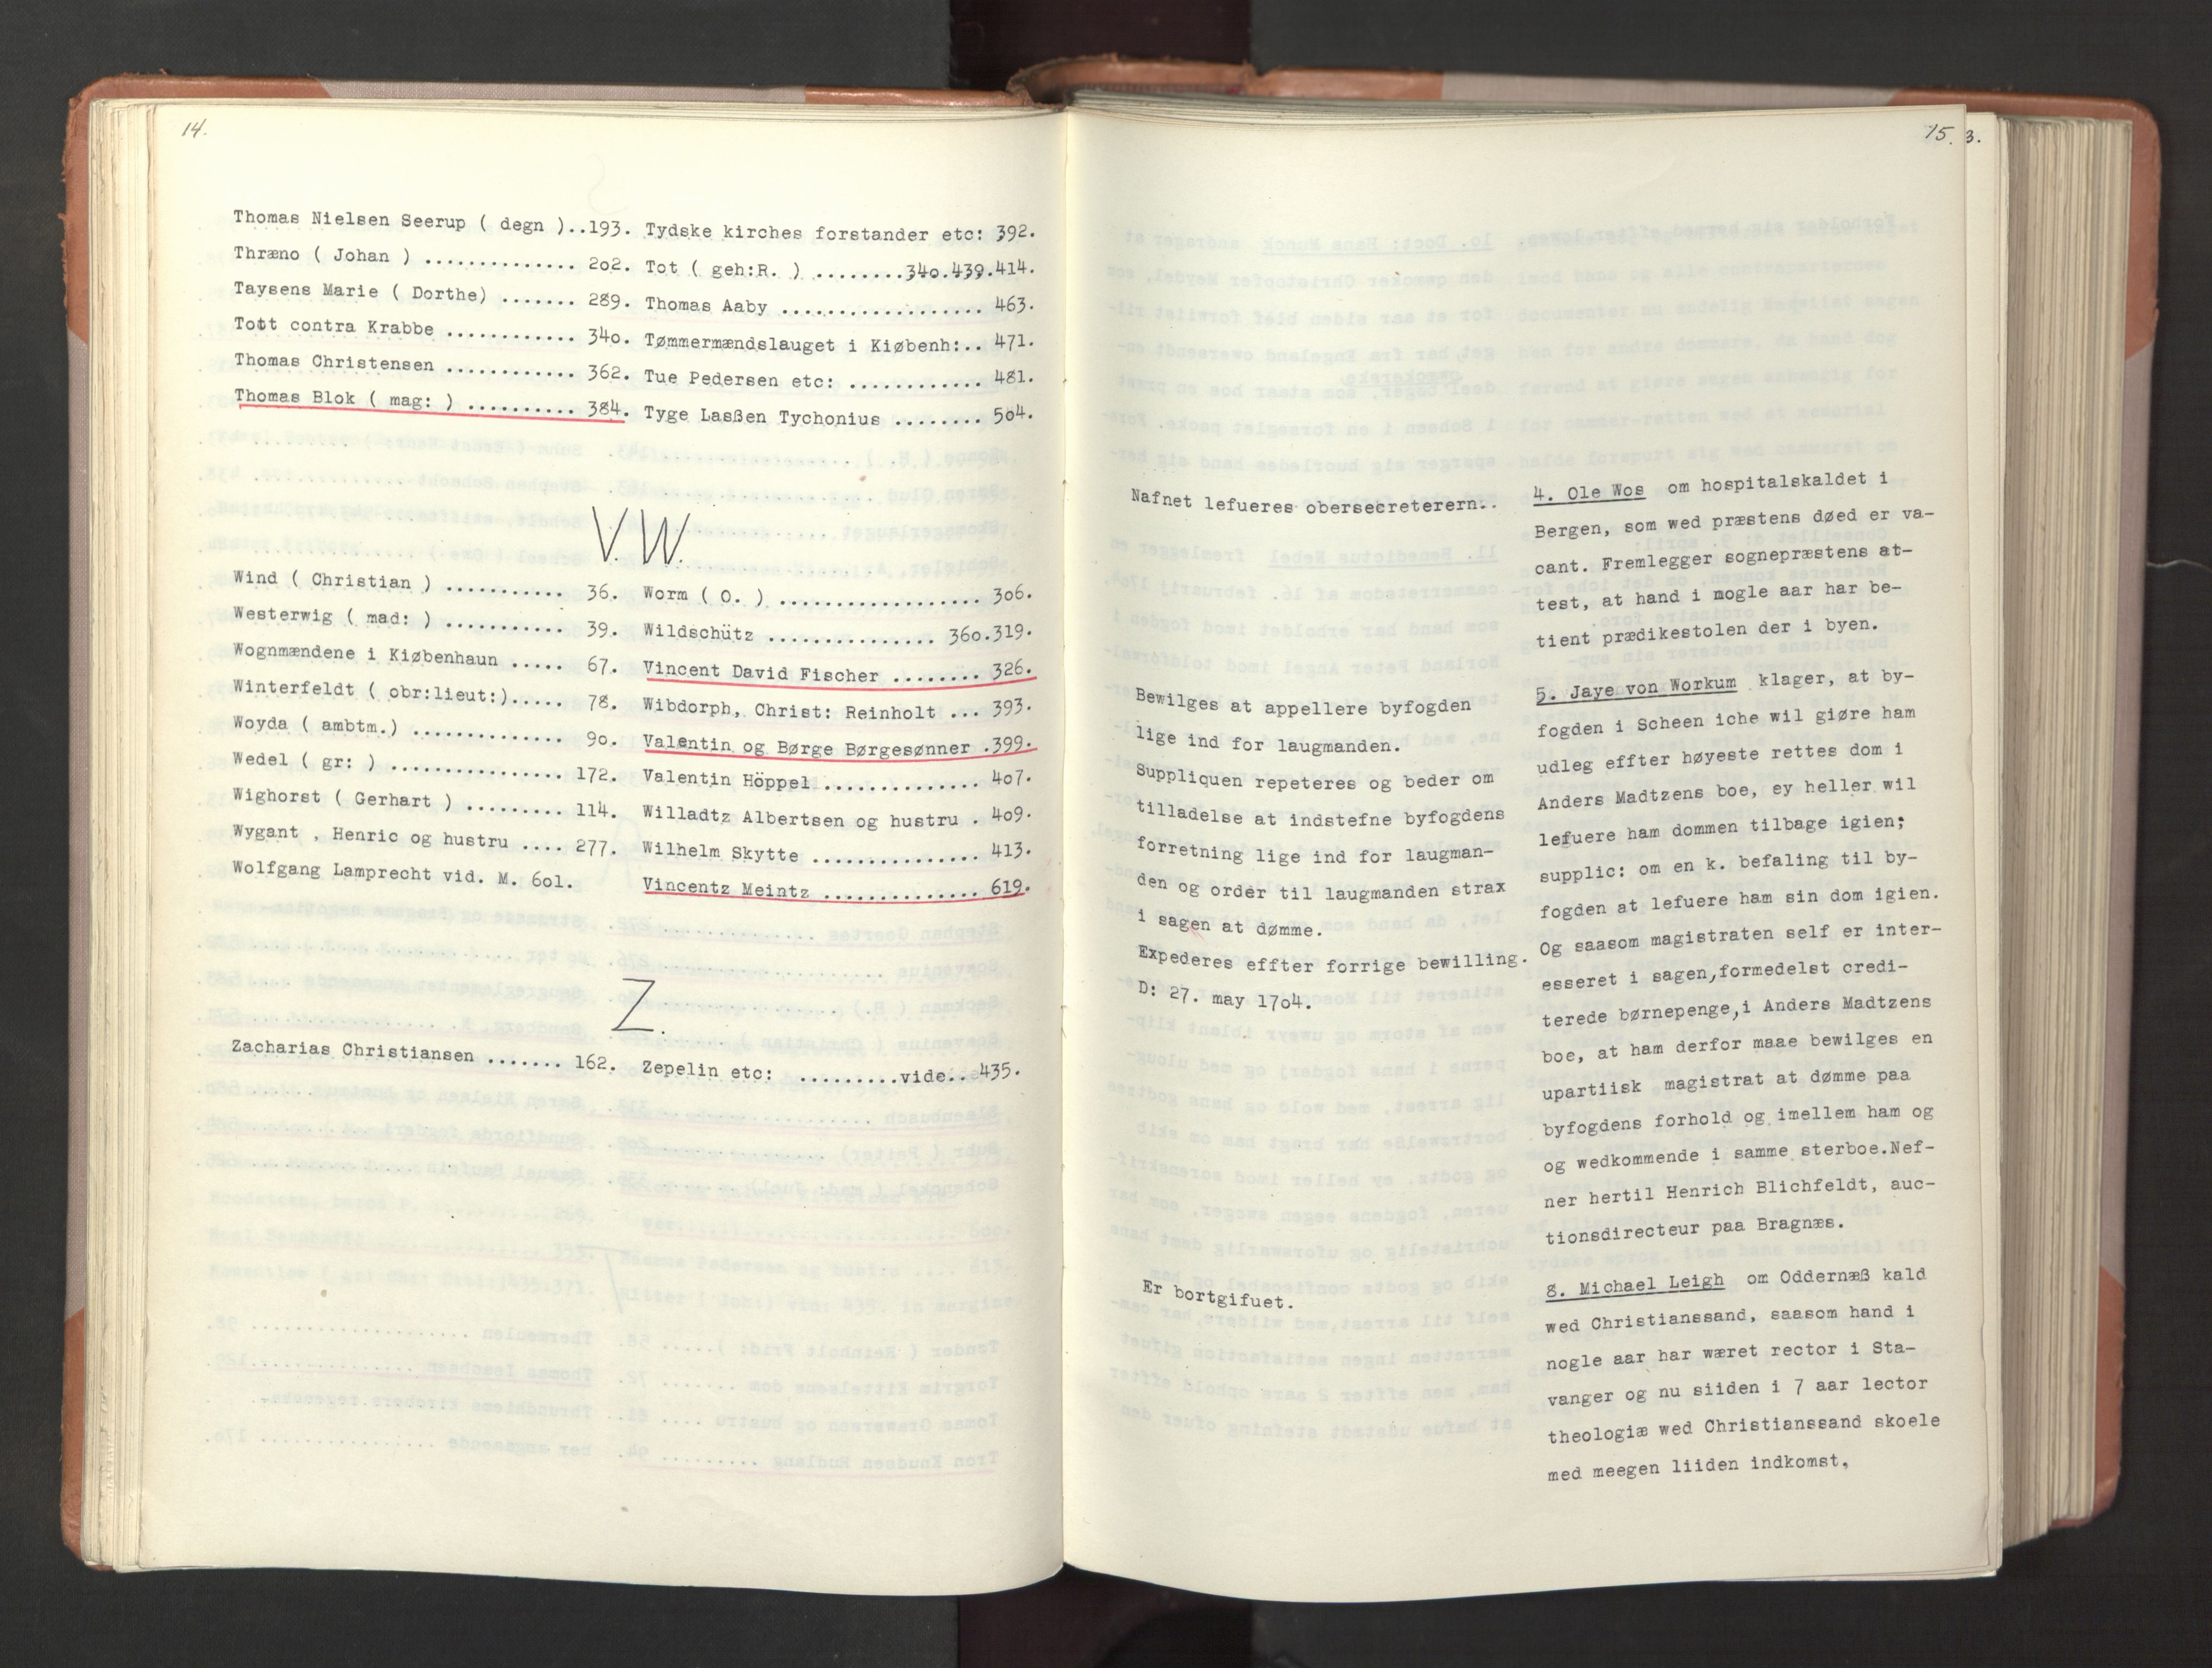 14.
Thomas Nielsen Seerup ( degn )..193.
Thræno ( Johan ) .............. 2o2.
Taysens Marie ( Dorthe) ....... 289.
Tott contra Krabbe ............ 34o.
Thomas Christensen ............ 362.
Thomas Blok ( mag: ) .......... 384.
Tydske kirches forstander etc: 392.
Tot ( geh:R. ) ........34o.439.414.
Thomas Aaby ................... 463.
Tømmermændslauget i Kiøbenh:.. 471.
Tue Pedersen etc: ............. 481.
Tyge Lasßen Tychonius ........ 5o4.
V.W.
Wind ( Christian ) ........... 36.
Westerwig ( mad: ) ........... 39.
Wognmændene i Kiøbenhaun ..... 67.
Winterfeldt ( obr:lieut:)..... 78.
Woyda ( ambtm.) .............. 9o.
Wedel ( gr: ) ................ 172.
Wighorst ( Gerhart ) ......... 114.
Wygant , Henric og hustru .... 277.
Wolfgang Lamprecht vid. M. 6o1.
Worm ( O. ) ................... 3o6.
Wildschütz ................ 36o.319.
Vincent David Fischer ........ 326.
Wibdorph, Christ: Reinholt ... 393.
Valentin og Børge Børgesønner .399.
Valentin Höppel ............... 4o7.
Willadtz Albertsen og hustru . 4o9.
Wilhelm Skytte ................ 413.
Vincentz Meintz ............... 619.
Z.
Zacharias Christiansen ....... 162.
Zepelin etc: ..........vide.. 435.
15.
3.
Nafnet lefueres obersecreterern..
Bewilges at appellere byfogden
lige ind for laugmanden.
Suppliquen repeteres og beder om
tilladelse at indstefne byfogdens
forretning lige ind for laugman-
den og order til laugmanden strax
i sagen at dømme.
Expederes effter forrige bewilling.
D: 27. may 17o4.
Er bortgifuet.
4. Ole Wos om hospitalskaldet i
Bergen, som wed præstens døed er va-
cant. Fremlegger sognepræstens at-
test, at hand i nogle aar har be-
tient prædikestolen der i byen.
5. Jaye von Workum klager, at by-
fogden i Scheen iche wil giøre ham
udleg effter høyeste rettes dom i
Anders Madtzens boe, ey heller wil
lefuere ham dommen tilbage igien;
supplic: om en k. befaling til by-
fogden at lefuere ham sin dom igien.
Og saasom magistraten self er inter-
esseret i sagen,formedelst credi-
terede børnepenge,i Anders Madtzens
boe, at ham derfor maae bewilges en
upartiisk magistrat at dømme paa
byfogdens forhold og imellem ham og
og wedkommende i samme sterboe.Nef-
ner hertil Henrich Blichfeldt, auc-
tionsdirecteur paa Bragnæs.
8. Michael Leigh om Oddernæß kald
wed Christianssand, saasom hand i
nogle aar har wæret rector i Sta-
vanger og nu siiden i 7 aar lector
theologiæ wed Christianssand skoele
med meegen liiden indkomst.